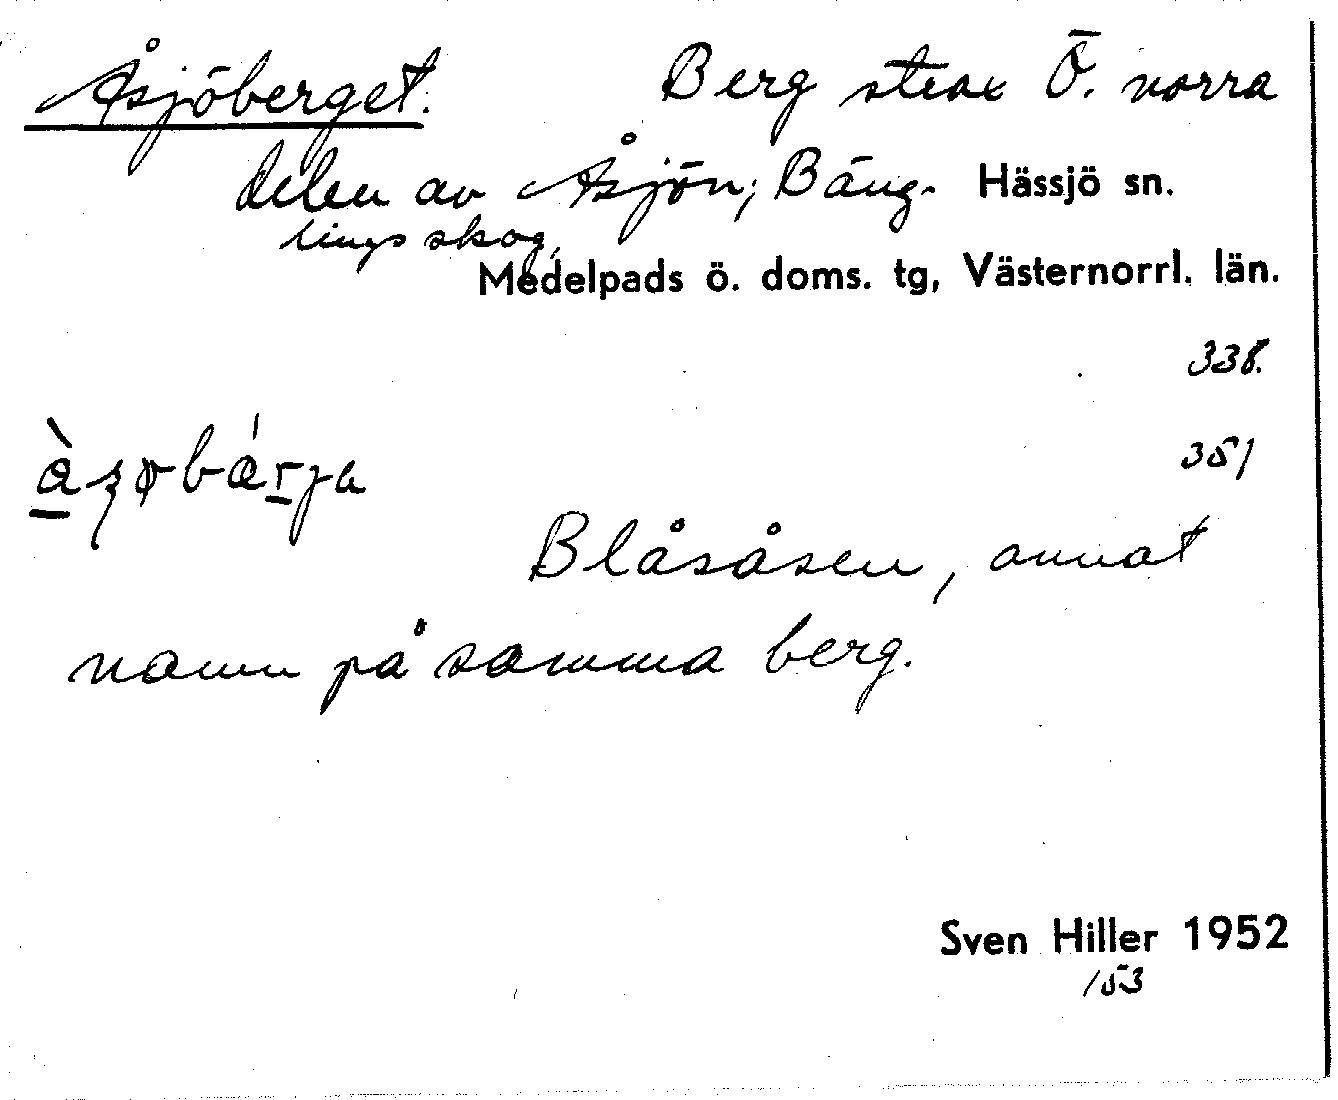 Åsjöberget. Berg strax Ö. norra
delen av Åsjön, Bäng- Hässjö sn.
lings skog,
Medelpads ö. doms. tg, Västernorrl. län.
338.
351
Blåsåsen, annat
namn på samma berg.
Sven Hiller 1952
153